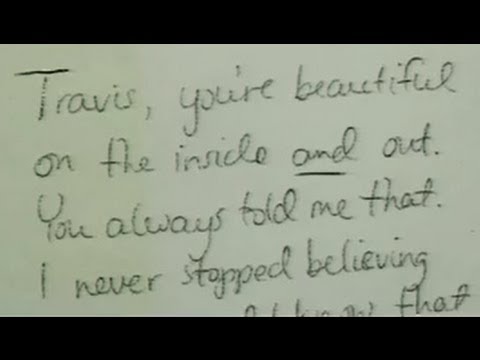 Travis, you're beautiful
on the inside and out.
You always told me that.
I never stopped believing
know that